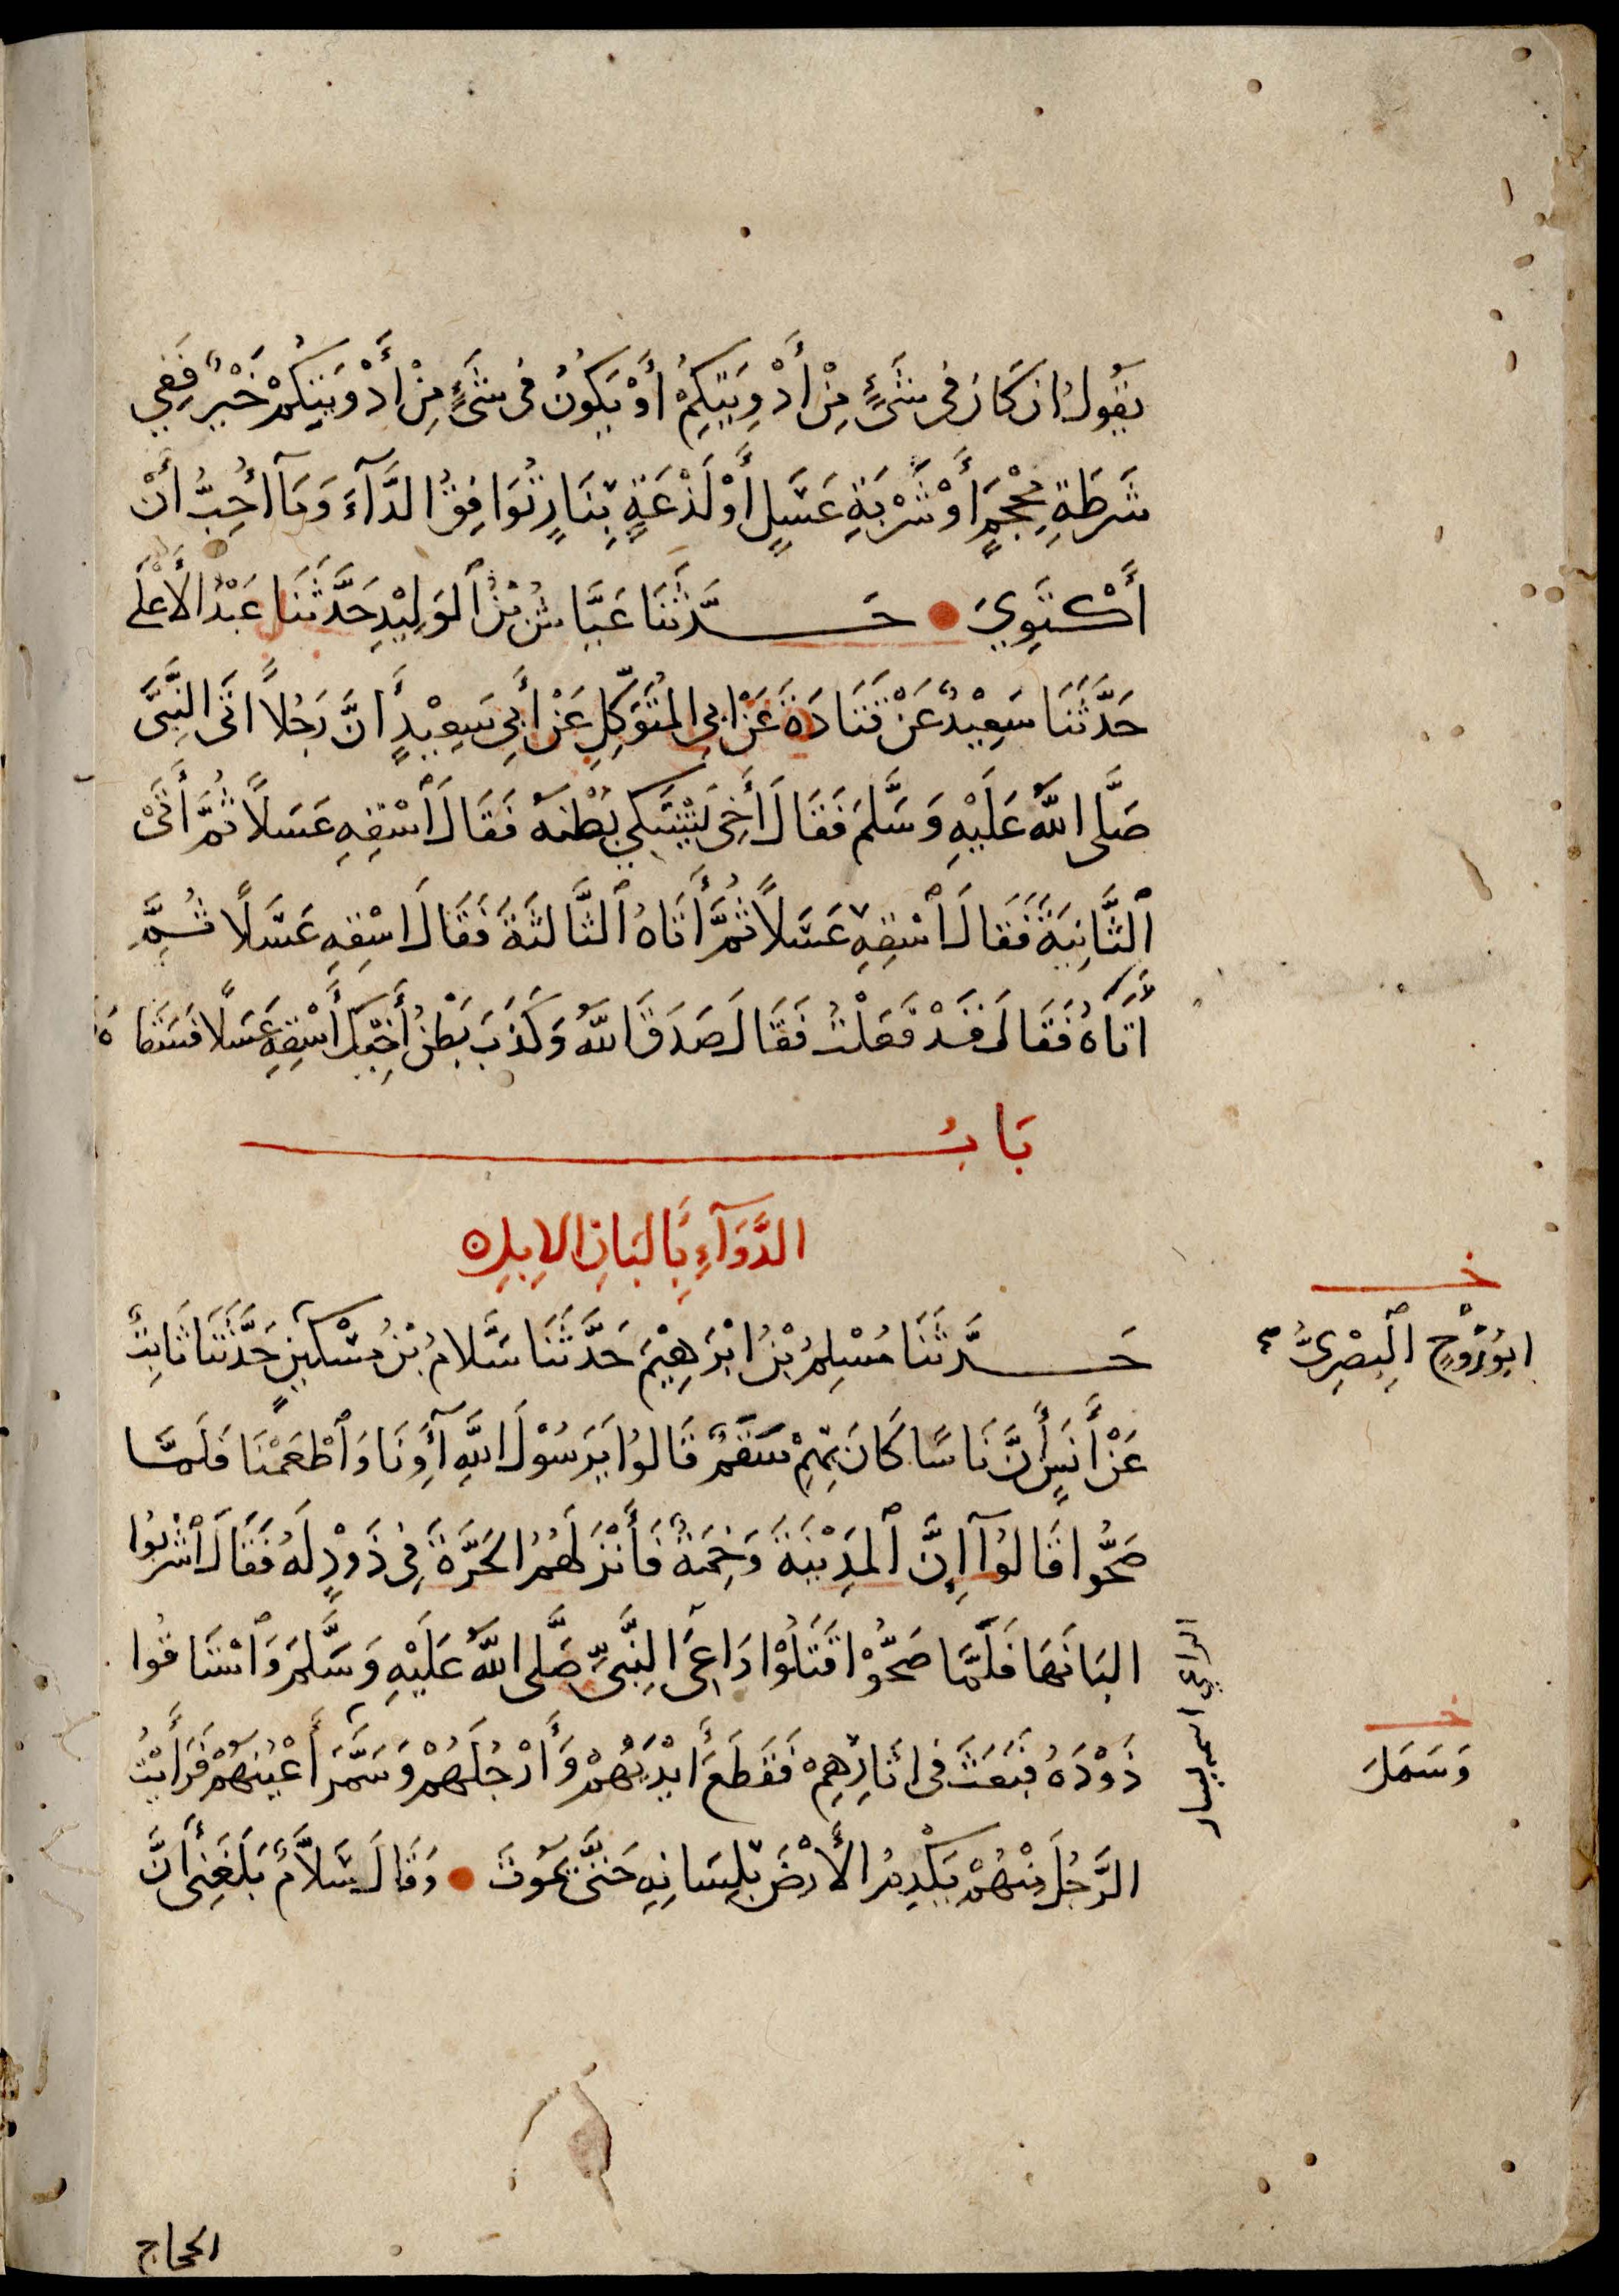 يَقُولُ ان كَانَ فى شَىْءٍ مِنْ أَدْوِيَتِكُمْ أَوْ يَكُونُ فى شَىْءٍ مِنْ أَدْوِيَتِكُمْ خَيْرٌ فَفِي
شَرْطَةِ مِحْجَمٍ أَوْ شَرْبَةِ عَسَلٍ أَوْ لَذْعَةٍ بِنَارٍ تُوَافِقُ الدَّآءَ وَمَآ أُحِبُّ أَنْ
أَكْتَوِيَ حَدَّثَنَا عَيَّاشُ بْنُ ٱلوَلِيْدِ حَدَّثَنَا عَبْدُ الأَعْلَى
حَدَّثَنَا سَعِيْدٌ عَنْ قَتَادَةَ عَنْ ابِى المُتَوَكِّلِ عَنْ أَبِى سَعِيْدٍ أَنَّ رَجُلاً اتَى النَّبِىَّ
صَلَّى اللّٰهُ عَلَيْهِ وَسَلَّمَ فَقَالَ أَخِى يَشْتَكِي بَطْنَهُ فَقَالَ ٱسْقِهِ عَسَلاً ثُمَّ أَتَى
ٱلثَّانِيَةَ فَقَالَ ٱسْقِهِ عَسَلاً ثُمَّ أَتَاهُ ٱلثَّالثَةَ فَقَالَ اسْقِهِ عَسَلاً ثُمَّ
أَتَاهُ فَقَالَ قَدْ فَعَلْتُ فَقَالَ صَدَقَ اللّٰهُ وَكَذَبَ بَطْنُ أَخِيْكَ ٱسْقِهِ عَسَلاً فَسَقَاهُ
بَابُ
الدَّوَآءِ بِأَلبَانِ الابِلِ
حَدَّثَنَا مُسْلِمُ بْنُ ابْرَهِيْمَ حَدَّثَنَا سَلَّامُ بْنُ مِسْكِينٍ حَدَّثَنَا ثَابِتٌ
ابُورَوْحٍ ٱلبَصْرِىُّ
عَنْ أَنَسٍ أَنَّ نَاسًا كَانَ بِهِمْ سَقَمٌ قَالُوا يَرَسُوْلَ اللّٰهِ آوِنَا وَٱطْعِمْنَا فَلَمَّا
صَحُّوا قَالُوآ إِنَّ ٱلمَدِيْنَةَ وَخِمَةٌ فَأَنْزَلَهُمُ الحَرَّةَ فِى ذَوْدٍ لَهُ فَقَالَ ٱشْرَبُوا
البَانَهَا فَلَمَّا صَحُّوْا قَتَلُوْا رَاعِىَ النَّبِىِّ صَلَّى اللّٰهُ عَلَيْهِ وَسَلَّمَ وَٱسْتَاقُوا
ذَوْدَهُ فَبَعَثَ فى اثَارِهِمْ فَقَطَعَ أَيْدِيَهُمْ وَأَرْجُلَهُمْ وَسَمَّرَ أَعْيُنَهُمْ فَرَأَيْتُ
وَسَمَلَ
الرَّجُلَ مِنْهُمْ يَكْدِمُ الأَرْضَ بِلِسَانِهِ حَتَّى يَمُوتَ وَقَالَ سَلاَّمٌ بَلَغَنِى أَنَّ
الحجاج